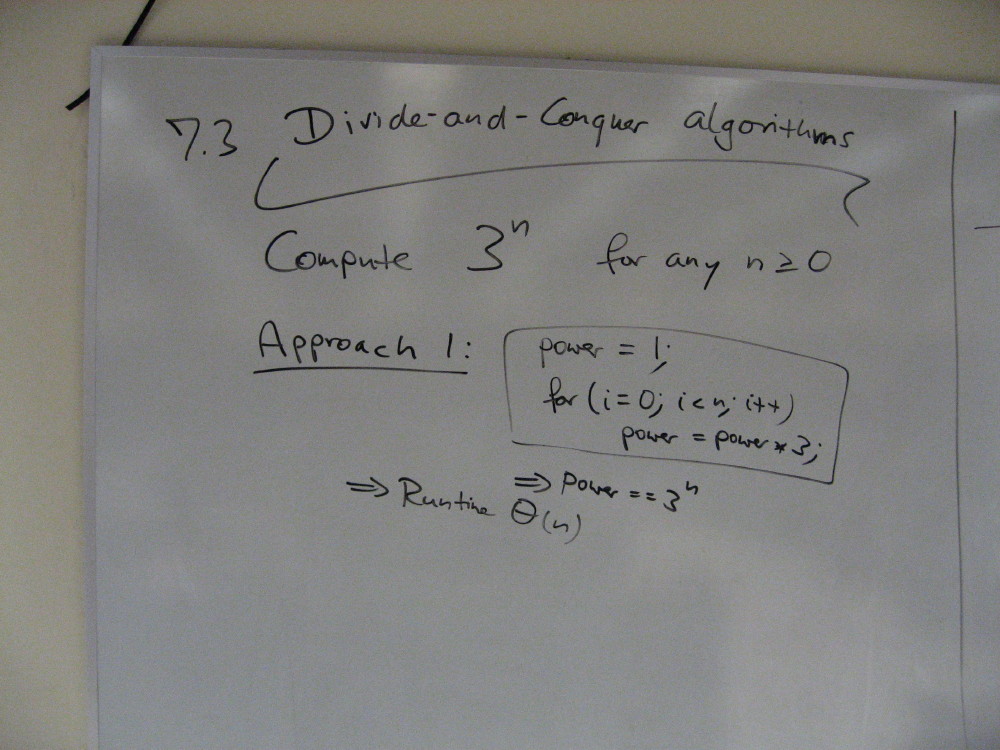 7.3 Divide-and-Conquer algorithms
Compute 3ⁿ for any n ≥ 0
Approach 1:
power = 1;
for (i=0; i<n; i++)
power = power * 3;
⇒ Power == 3ⁿ
⇒ Runtime Θ(n)